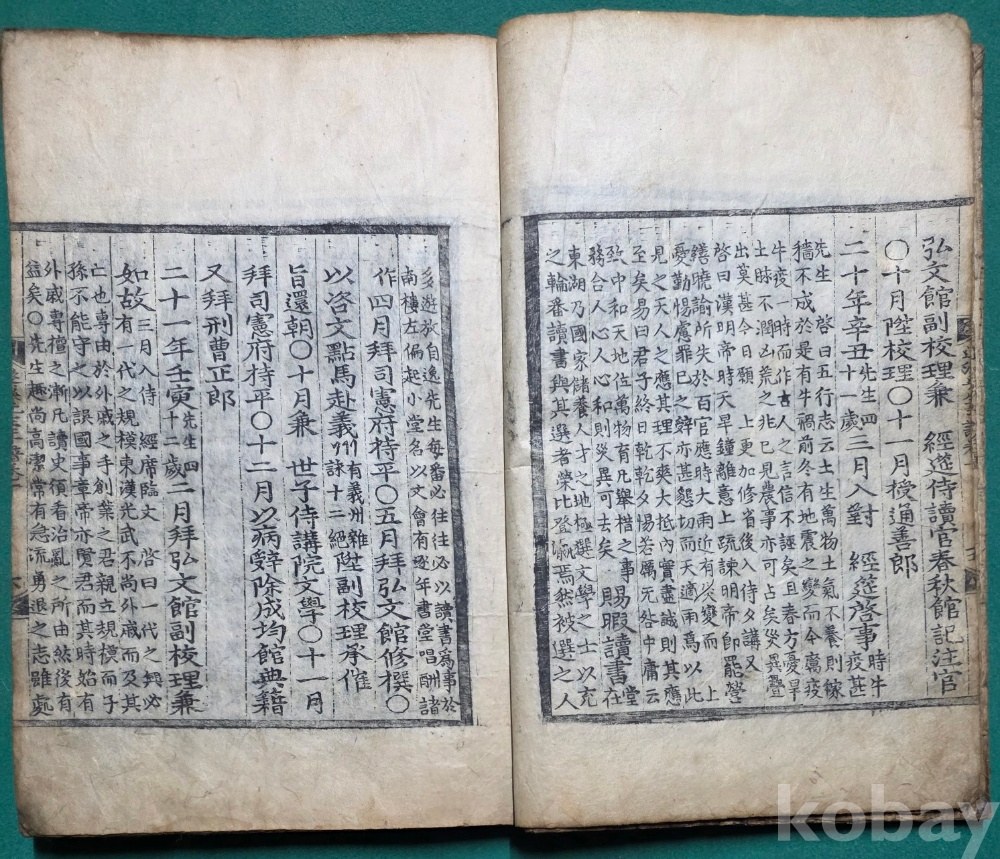 弘文館副校理兼 經筵侍讀官春秋館記注官
〇十月陞校理〇十一月授通善郎
二十年辛丑先生四十一歲三月入對 經筵啓事時牛疫甚
先生 啓曰五行志云土生萬物土氣不養則稼
穡不成於是有牛禍前冬有地震之變而今癘疫
牛疫一時而作古人之言信不誣矣且春方憂旱
土脉不潤凶荒之兆已見農事亦可占矣灾異疊
出莫甚今日願 上更加修省後入侍夕講又
啓曰漢明帝時天旱鐘離意上疏諫明帝卽罷營
繕曉諭所失於百官應時大雨近有灾變而 上
憂勤惕慮罪己之辭亦甚懇切而天適雨焉以此
見之天人之應其理不爽大抵內實盡誠則其應
至矣易曰君子終日乾乾夕惕若厲无咎中庸云
致中和天地位萬物育凡舉措之事
務合人心人心和則灾異可去矣
賜暇讀書堂在
東湖乃國家儲養人才之地極選文學之士以充
之輪番讀書與其選者榮比登瀛焉然被選之人
多遊放自逸先生每番必往往必以讀書爲事於
南樓左偏起小堂名以文會有逐年書堂唱酬諸
作四月拜司憲府持平〇五月拜弘文館修撰〇
以咨文點馬赴義州有義州雜詠十二絶陞副校理承催
旨還朝〇十月兼 世子侍講院文學〇十一月
拜司憲府持平〇十二月以病辭除成均館典籍
又拜刑曹正郎
二十一年壬寅先生四十二歲二月拜弘文館副校理兼
如故三月入侍 經席臨文 啓曰一代之興必
有一代之規模東漢光武不尚外戚而及其
亡也專由於外戚之手創業之君親立規模而子
孫不能守之以誤國事章帝亦賢君而其時始有
外戚專擅之漸凡讀史須看治亂之所由然後有
益矣〇先生趣尚高潔常有急流勇退之志雖處
kobay